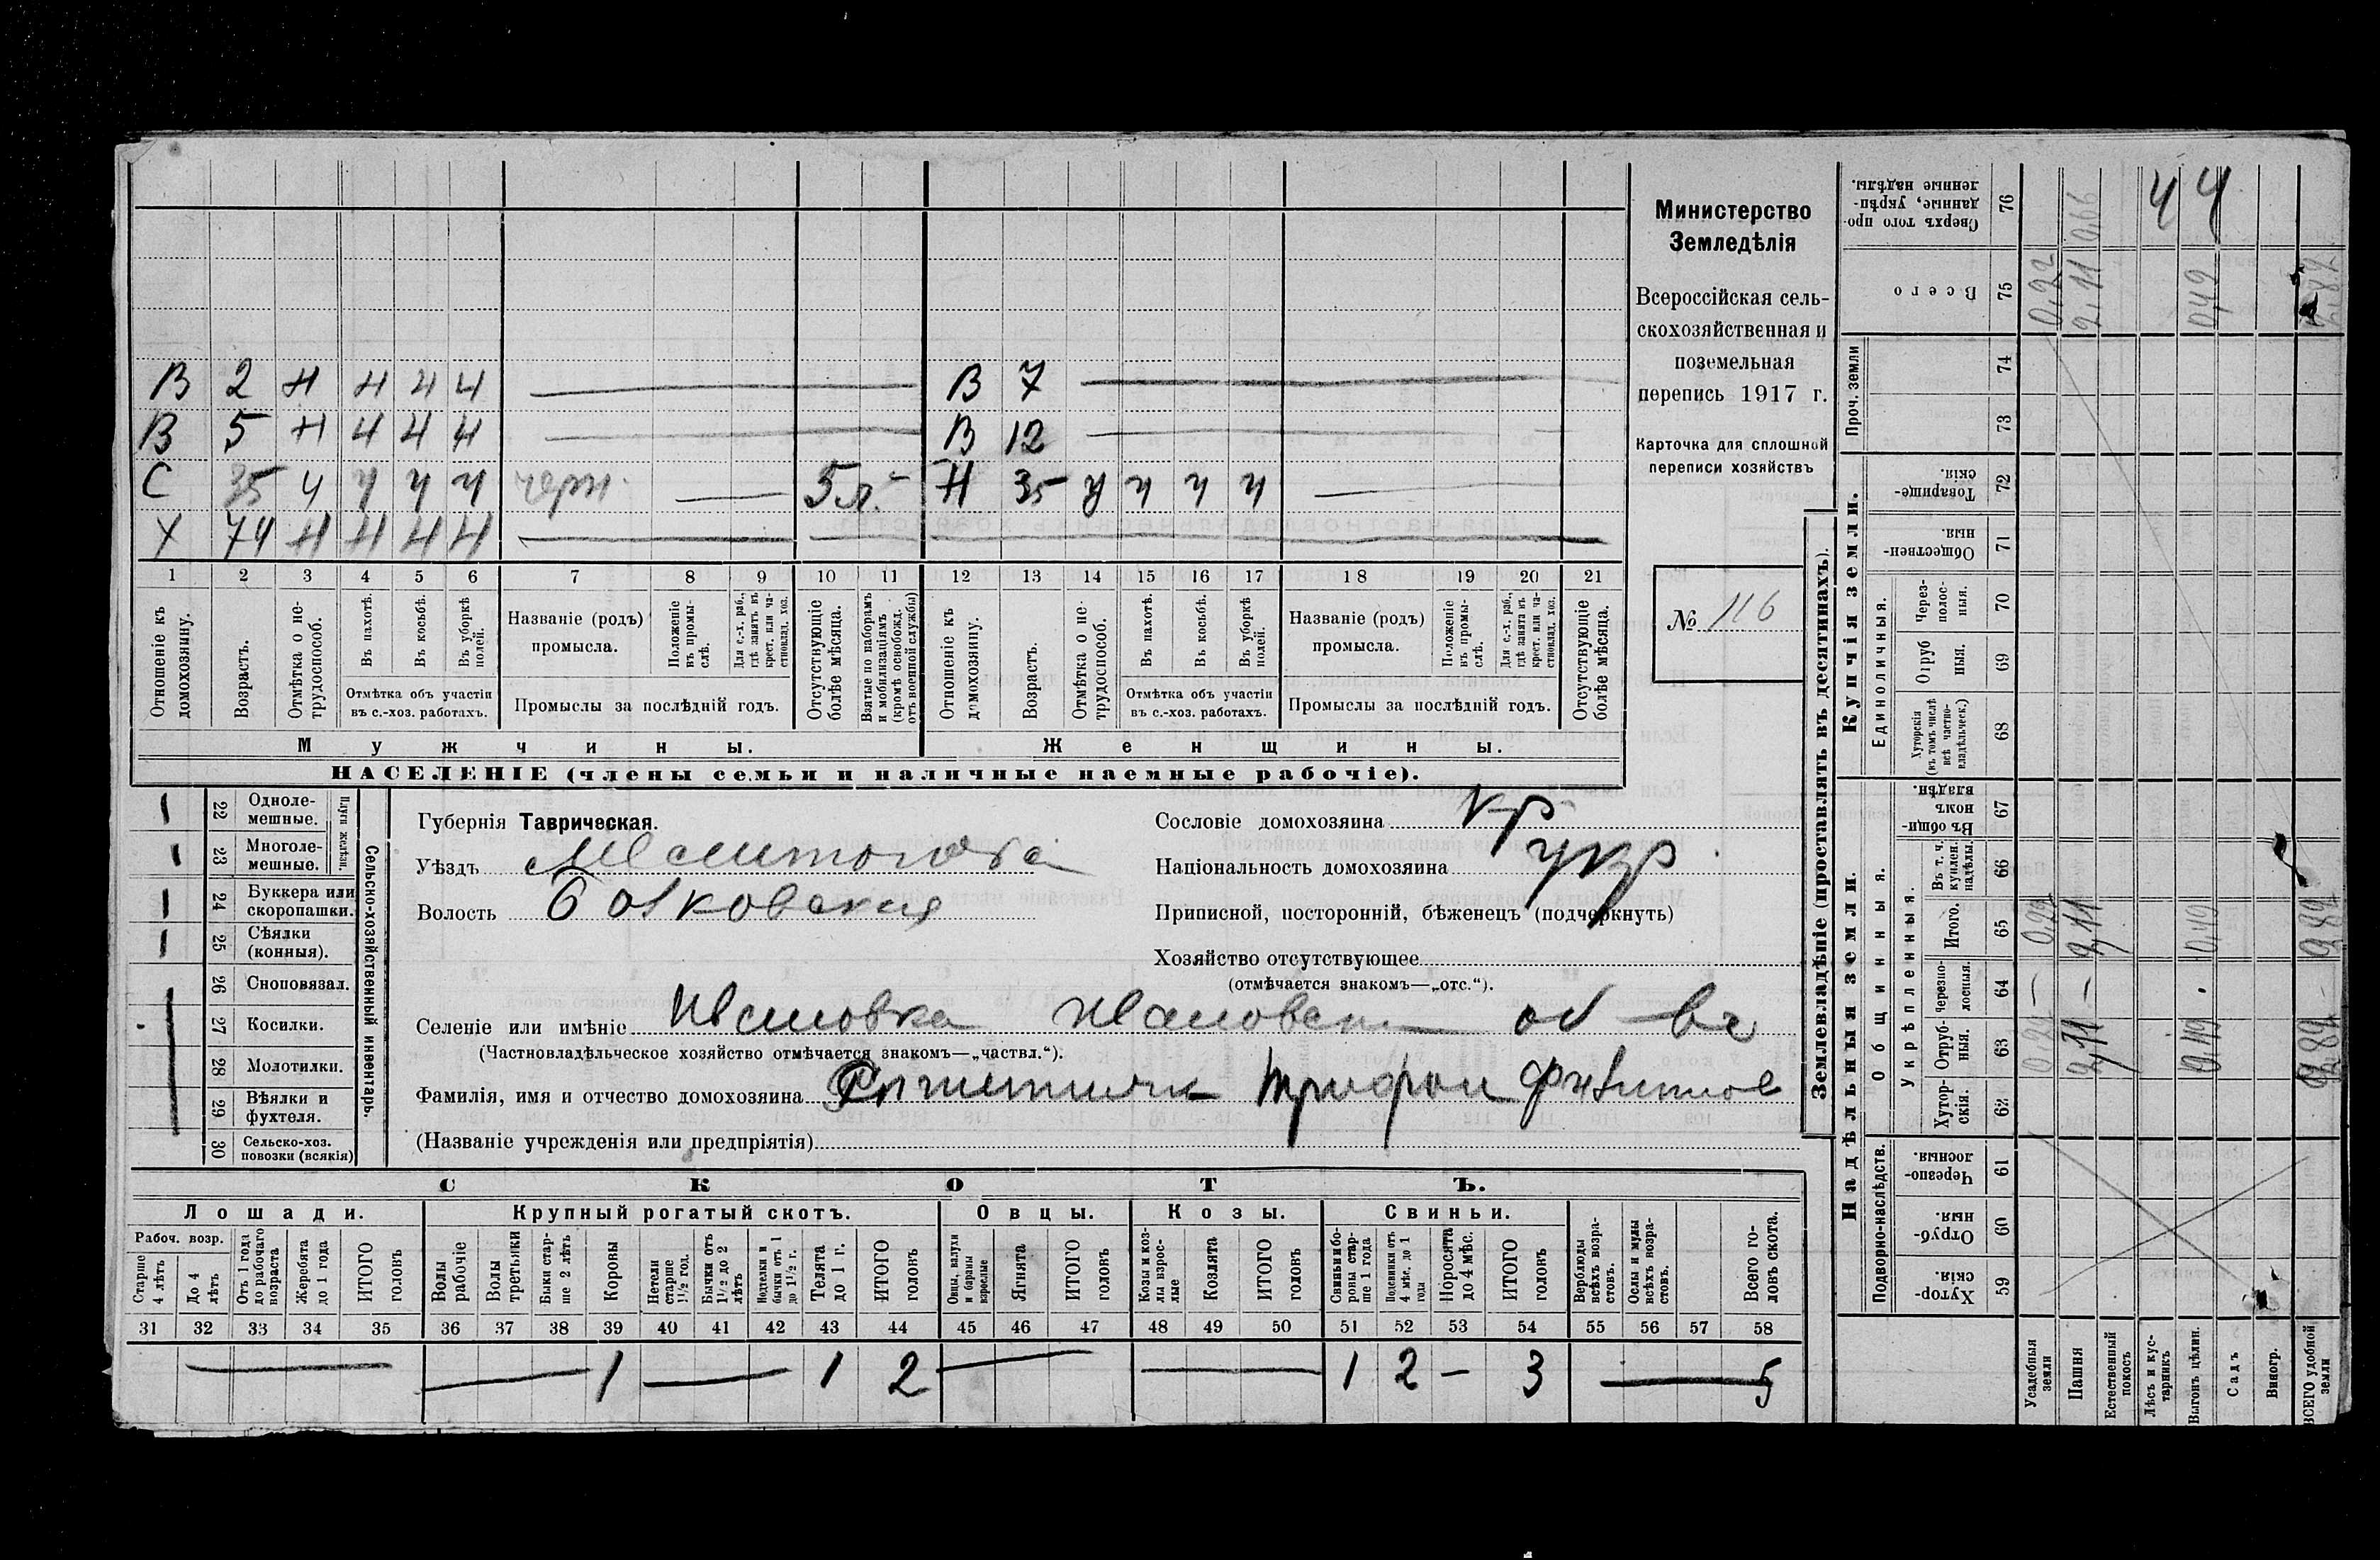 В 2 Н Ч Ч Ч В 7
В 5 Н Ч Ч Ч В 12
С 35 Ч Ч Ч Ч 5 л. Н 35 У Ч Ч Ч
Х 74 Н Н Н Н
1 2 3 4 5 6 7 8 9 10 11 12 13 14 15 16 17 18 19 20 21
Отношеніе къ домохозяину.
Возрастъ.
Отмѣтка о не-трудоспособ.
Въ пахотѣ.
Въ косьбѣ.
Въ уборкѣ полей.
Отмѣтка объ участіи въ с.-хоз. работахъ.
Названіе (родъ) промысла.
Положеніе въ промы-слѣ.
Для с.-х. раб., гдѣ занятъ въ крест. или ча-стновлад. хоз.
Промыслы за послѣдній годъ.
Отсутствующіе болѣе мѣсяца.
Взятые по наборамъ и мобилизаціямъ (кромѣ освобожд. отъ военной службы)
Отношеніе къ домохозяину.
Возрастъ.
Отмѣтка о не-трудоспособ.
Въ пахотѣ.
Въ косьбѣ.
Въ уборкѣ полей.
Отмѣтка объ участіи въ с.-хоз. работахъ.
Названіе (родъ) промысла.
Положеніе въ промы-слѣ.
Для с.-х. раб., гдѣ занята въ крест. или ча-стновлад. хоз.
Промыслы за послѣдній годъ.
Отсутствующіе болѣе мѣсяца.
Мужчины. Женщины.
НАСЕЛЕНІЕ (члены семьи и наличные наемные рабочіе).
Министерство
Земледѣлія
Всероссійская сель-
скохозяйственная и
поземельная
перепись 1917 г.
Карточка для сплошной
переписи хозяйствъ
№ 116
22 Одноле-мешные.
23 Многоле-мешные.
Плуги желѣзн.
24 Буккера или скоропашки.
25 Сѣялки (конныя).
26 Сноповязал.
27 Косилки.
28 Молотилки.
29 Вѣялки и фухтеля.
30 Сельско-хоз. повозки (всякія)
Сельско-хозяйственный инвентарь.
Губернія Таврическая.
Уѣздъ
Волость
Сословіе домохозяина кр
Національность домохозяина укр
Приписной, посторонній, бѣженецъ (подчеркнуть)
Хозяйство отсутствующее
(отмѣчается знакомъ—„отс.“).
Селеніе или имѣніе
(Частновладѣльческое хозяйство отмѣчается знакомъ—„частвл.“).
Фамилія, имя и отчество домохозяина Трифон
(Названіе учрежденія или предпріятія)
СКОТЪ.
Лошади. Крупный рогатый скотъ. Овцы. Козы. Свиньи.
Рабоч. возр.
Старше 4 лѣтъ
До 4 лѣтъ
Отъ 1 года до рабочаго возраста
Жеребята до 1 года
ИТОГО головъ
Волы рабочіе
Волы третьяки
Быки стар-ше 2 лѣтъ
Коровы
Нетели старше 1½ год.
Бычки отъ 1½ до 2 лѣтъ
Подтелки и бычки отъ 1 до 1½ г.
Телята до 1 г.
ИТОГО головъ
Овцы, валухи и бараны взрослые
Ягнята
ИТОГО головъ
Козы и коз-лы взрос-лые
Козлята
ИТОГО головъ
Свиньи и бо-ровы стар-ше 1 года
Подсвинки отъ 4 мѣс. до 1 года
Поросята до 4 мѣс.
ИТОГО головъ
Верблюды всѣхъ возра-стовъ.
Ослы и мулы всѣхъ возра-стовъ.
Всего го-ловъ скота.
31 32 33 34 35 36 37 38 39 40 41 42 43 44 45 46 47 48 49 50 51 52 53 54 55 56 57 58
1 1 2 1 2 — 3 5
Землевладѣніе (проставлять въ десятинахъ).
Надѣльныя земли. Купчія земли. Проч. земли
Подворно-наслѣдств.
Общинныя.
Укрѣпленныя.
Единоличныя.
Сверхъ того про-данные, укрѣп-ленные надѣлы. 76 44
Всего 75 0,22 2,11 0,49 2,82
74
73
Товарище-скія. 72
Обществен-ныя 71
Через-полос-ныя. 70
Отруб ныя. 69
Хуторскія (въ томъ числѣ всѣ частно-владѣльческ.) 68
Въ общи-номъ владѣн. 67
Въ т. ч. куплен. надѣлы. 66
Итого. 65 0,22 2,11 0,49 2,82
Черезпо-лосныя. 64
Отруб-ныя. 63 2,11 0,49 2,82
Хутор-скія. 62
Черезпо-лосныя. 61
Отруб-ныя. 60
Хутор-скія. 59
Усадебныя земли
Пашня
Естественный покосъ
Лѣсъ и кус-тарникъ
Выгонъ цѣлин.
Садъ
Виногр.
ВСЕГО удобной земли